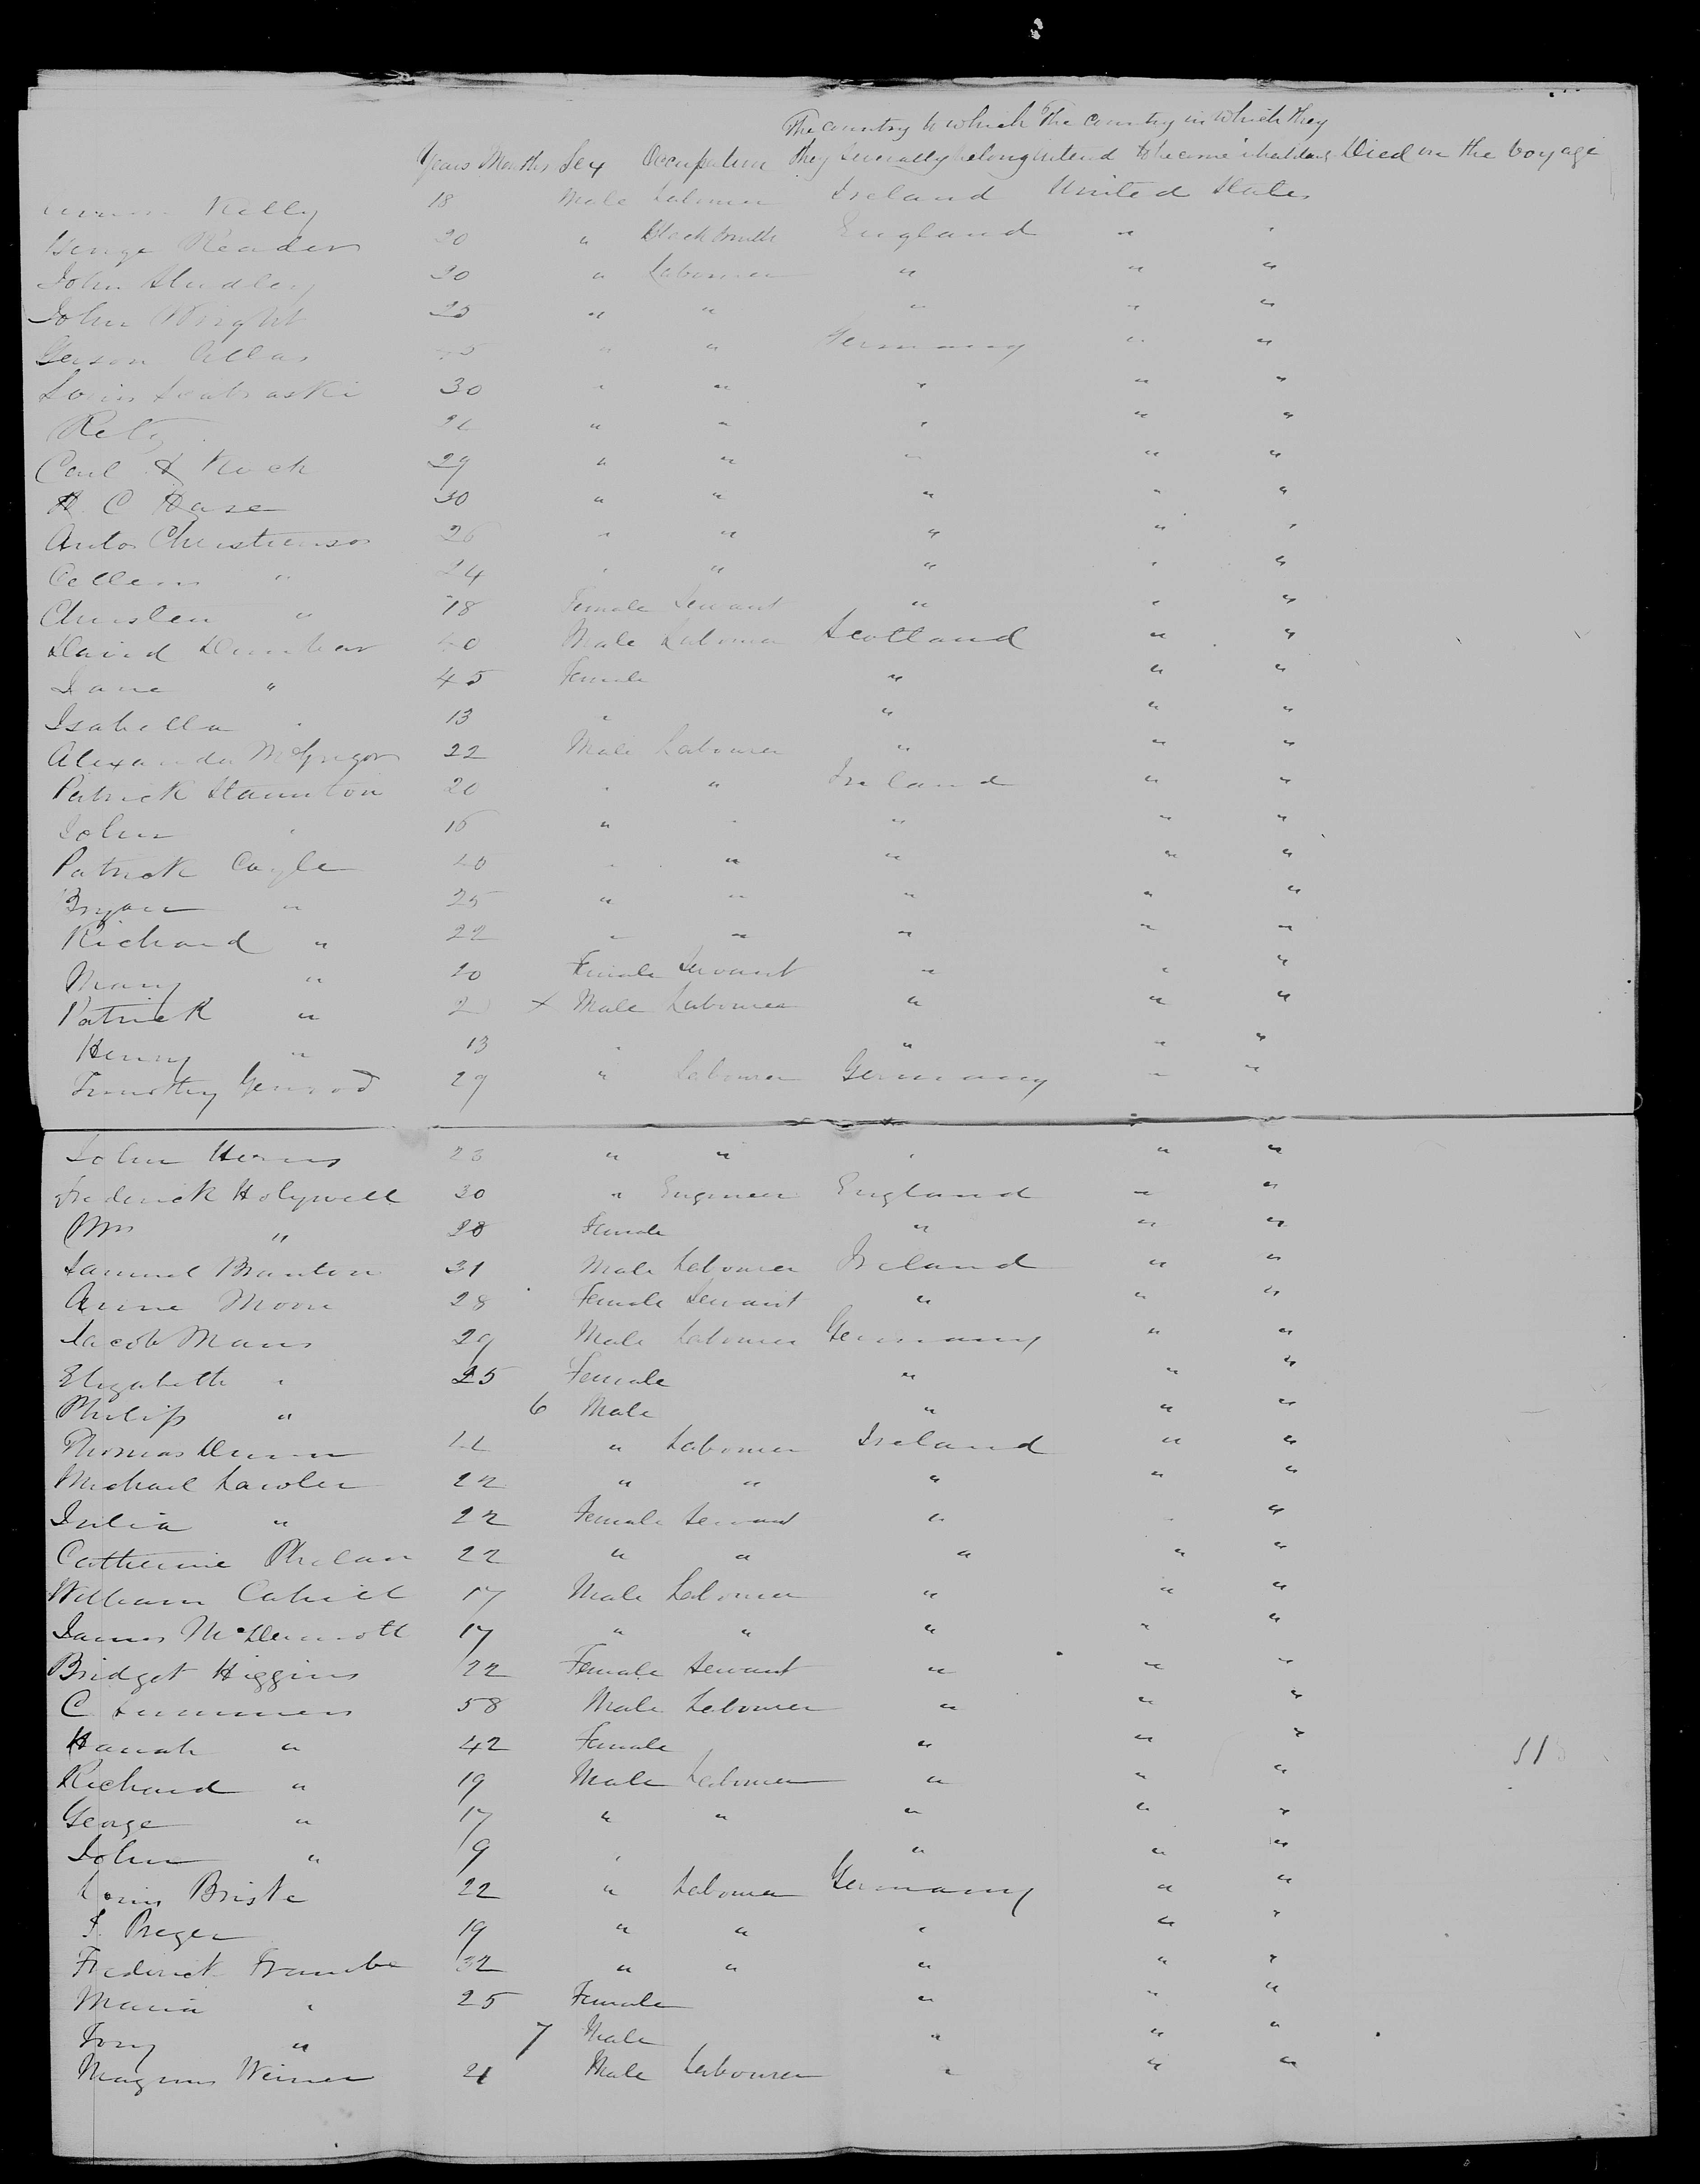 The country to which The country in which they
Years Months Sex Occupation they severally belong intend to become inhabitants Died on the voyage
Kelly 18 Male Labourer Ireland United States
George Reader 30 " Blacksmith England " "
John Studley 30 " Labourer " " "
John Wright 25 " " " " "
" " Germany " "
Louis 30 " " " " "
Retz " " " " "
Carl Koch 29 " " " " "
H C Hase 30 " " " " "
Christenson 26 " " " " "
" 24 " " " " "
Christen " 18 Female Servant " " "
David Dunbar 40 Male Labourer Scotland " "
Jane " 45 Female " " "
Isabella " 13 " " " "
Alexander McGregor 22 Male Labourer " " "
Patrick Staunton 20 " " Ireland " "
John " 16 " " " " "
Patrick Coyle " " " " "
Bryan " 25 " " " " "
Richard " 22 " " " " "
Mary " 20 Female Servant " " "
Patrick " 2 x Male Labourer " " "
Henry " 13 " " " "
Timothy 29 " Labourer Germany " "
John 23 " " " " "
Frederick Holywell 30 " Engineer England " "
Mrs " 28 Female " " "
Samuel Branton 31 Male Labourer Ireland " "
Anne Moore 28 Female Servant " " "
Jacob Mans 29 Male Labourer Germany " "
Elizabeth " 25 Female " " "
Philip " 6 Male " " "
Thomas Dunn " Labourer Ireland " "
Michael Lawler 22 " " " " "
Julia " 22 Female Servant " " "
Catherine Phelan 22 " " " " "
William Cahill 17 Male Labourer " " "
James McDermott 17 " " " " "
Bridget Higgins 22 Female Servant " " "
C Summers 58 Male Labourer " " "
Hanah " 42 Female " " "
Richard " 19 Male Labourer " " "
George " 17 " " " " "
John " 9 " " " "
Louis Briske 22 " Labourer Germany " "
J. Preger 19 " " " " "
Frederick Frambe 32 " " " " "
Maria " 25 Female " " "
" 7 Male " " "
Magnus Weiner 21 Male Labourer " " "